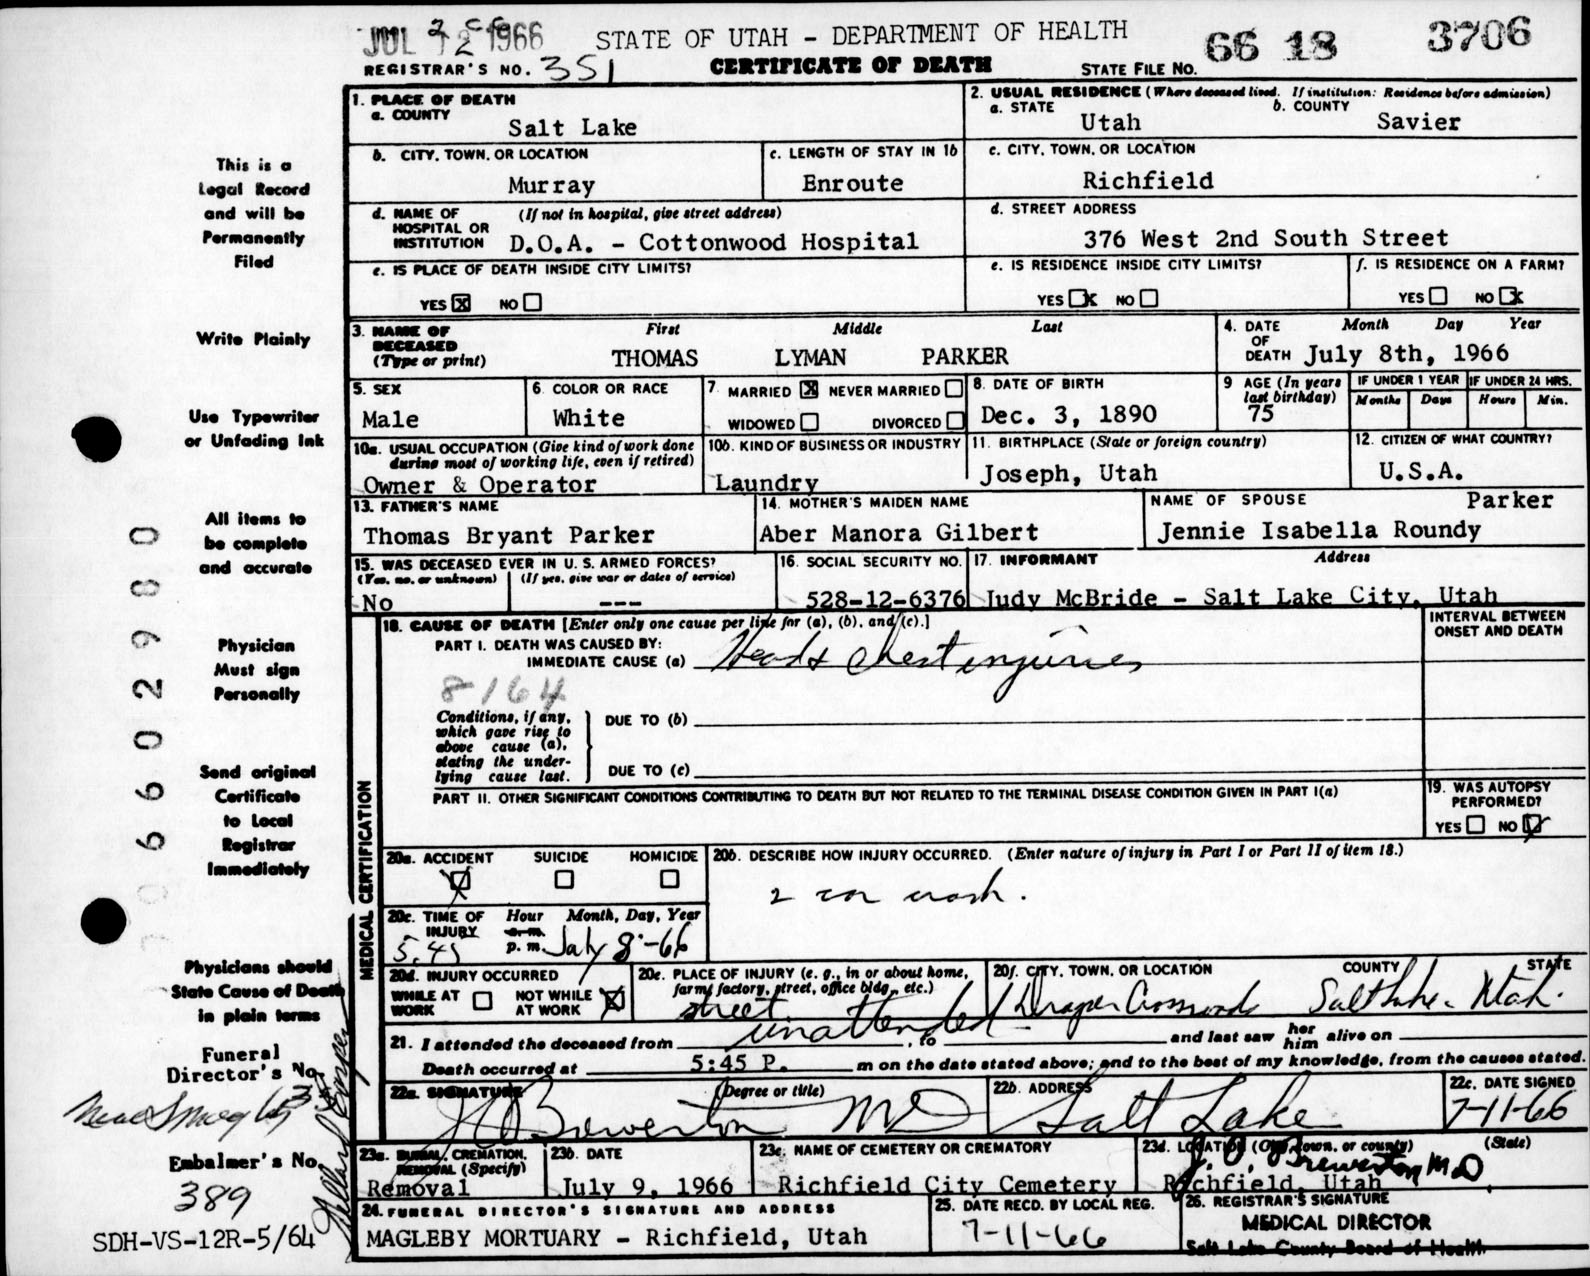 JUL 12 1966
STATE OF UTAH - DEPARTMENT OF HEALTH
66 18 3706
REGISTRAR'S NO. 351
CERTIFICATE OF DEATH
STATE FILE NO.
This is a
Legal Record
and will be
Permanently
Filed
Write Plainly
Use Typewriter
or Unfading Ink
All items to
be complete
and accurate
Physician
Must sign
Personally
Send original
Certificate
to Local
Registrar
Immediately
Physicians should
State Cause of Death
in plain terms
Funeral
Director's No.
Embalmer's No.
389
SDH-VS-12R-5/64
6602980
1. PLACE OF DEATH
a. COUNTY
Salt Lake
2. USUAL RESIDENCE (Where deceased lived. If institution: Residence before admission)
a. STATE
Utah
b. COUNTY
Savier
b. CITY, TOWN, OR LOCATION
Murray
c. LENGTH OF STAY IN 1b
Enroute
c. CITY, TOWN, OR LOCATION
Richfield
d. NAME OF (If not in hospital, give street address)
HOSPITAL OR
INSTITUTION D.O.A. - Cottonwood Hospital
d. STREET ADDRESS
376 West 2nd South Street
e. IS PLACE OF DEATH INSIDE CITY LIMITS?
YES X NO
e. IS RESIDENCE INSIDE CITY LIMITS?
YES X NO
f. IS RESIDENCE ON A FARM?
YES NO X
3. NAME OF
DECEASED
(Type or print)
First Middle Last
THOMAS LYMAN PARKER
4. DATE Month Day Year
OF
DEATH July 8th, 1966
5. SEX
Male
6. COLOR OR RACE
White
7. MARRIED X NEVER MARRIED
WIDOWED DIVORCED
8. DATE OF BIRTH
Dec. 3, 1890
9 AGE (In years
last birthday)
75
IF UNDER 1 YEAR
Months Days
IF UNDER 24 HRS.
Hours Min.
10a. USUAL OCCUPATION (Give kind of work done
during most of working life, even if retired)
Owner & Operator
10b. KIND OF BUSINESS OR INDUSTRY
Laundry
11. BIRTHPLACE (State or foreign country)
Joseph, Utah
12. CITIZEN OF WHAT COUNTRY?
U.S.A.
13. FATHER'S NAME
Thomas Bryant Parker
14. MOTHER'S MAIDEN NAME
Aber Manora Gilbert
NAME OF SPOUSE Parker
Jennie Isabella Roundy
15. WAS DECEASED EVER IN U. S. ARMED FORCES?
(Yes, no, or unknown) (If yes, give war or dates of service)
No ---
16. SOCIAL SECURITY NO.
528-12-6376
17. INFORMANT Address
Judy McBride - Salt Lake City, Utah
MEDICAL CERTIFICATION
18. CAUSE OF DEATH [Enter only one cause per line for (a), (b), and (c).]
INTERVAL BETWEEN
ONSET AND DEATH
PART I. DEATH WAS CAUSED BY:
IMMEDIATE CAUSE (a) Head & chest injuries
8164
Conditions, if any,
which gave rise to
above cause (a),
stating the under-
lying cause last.
DUE TO (b)
DUE TO (c)
PART II. OTHER SIGNIFICANT CONDITIONS CONTRIBUTING TO DEATH BUT NOT RELATED TO THE TERMINAL DISEASE CONDITION GIVEN IN PART I(a)
19. WAS AUTOPSY
PERFORMED?
YES NO X
20a. ACCIDENT SUICIDE HOMICIDE
X
20b. DESCRIBE HOW INJURY OCCURRED. (Enter nature of injury in Part I or Part II of item 18.)
2 car crash.
20c. TIME OF Hour Month, Day, Year
INJURY a.m.
5:45 p.m. July 8-66
20d. INJURY OCCURRED
WHILE AT WORK NOT WHILE AT WORK X
20e. PLACE OF INJURY (e. g., in or about home,
farm, factory, street, office bldg., etc.)
street
20f. CITY, TOWN, OR LOCATION COUNTY STATE
Draper Crossroads Salt Lake Utah.
21. I attended the deceased from unattended, to and last saw her him alive on
Death occurred at 5:45 P. m on the date stated above; and to the best of my knowledge, from the causes stated.
22a. SIGNATURE (Degree or title)
Brewerton MD
22b. ADDRESS
Salt Lake
22c. DATE SIGNED
7-11-66
23a. BURIAL, CREMATION,
REMOVAL (Specify)
Removal
23b. DATE
July 9, 1966
23c. NAME OF CEMETERY OR CREMATORY
Richfield City Cemetery
23d. LOCATION (City, town, or county) (State)
Richfield, Utah
24. FUNERAL DIRECTOR'S SIGNATURE AND ADDRESS
MAGLEBY MORTUARY - Richfield, Utah
25. DATE RECD. BY LOCAL REG.
7-11-66
26. REGISTRAR'S SIGNATURE
Brewerton M.D
MEDICAL DIRECTOR
Salt Lake County Board of Health